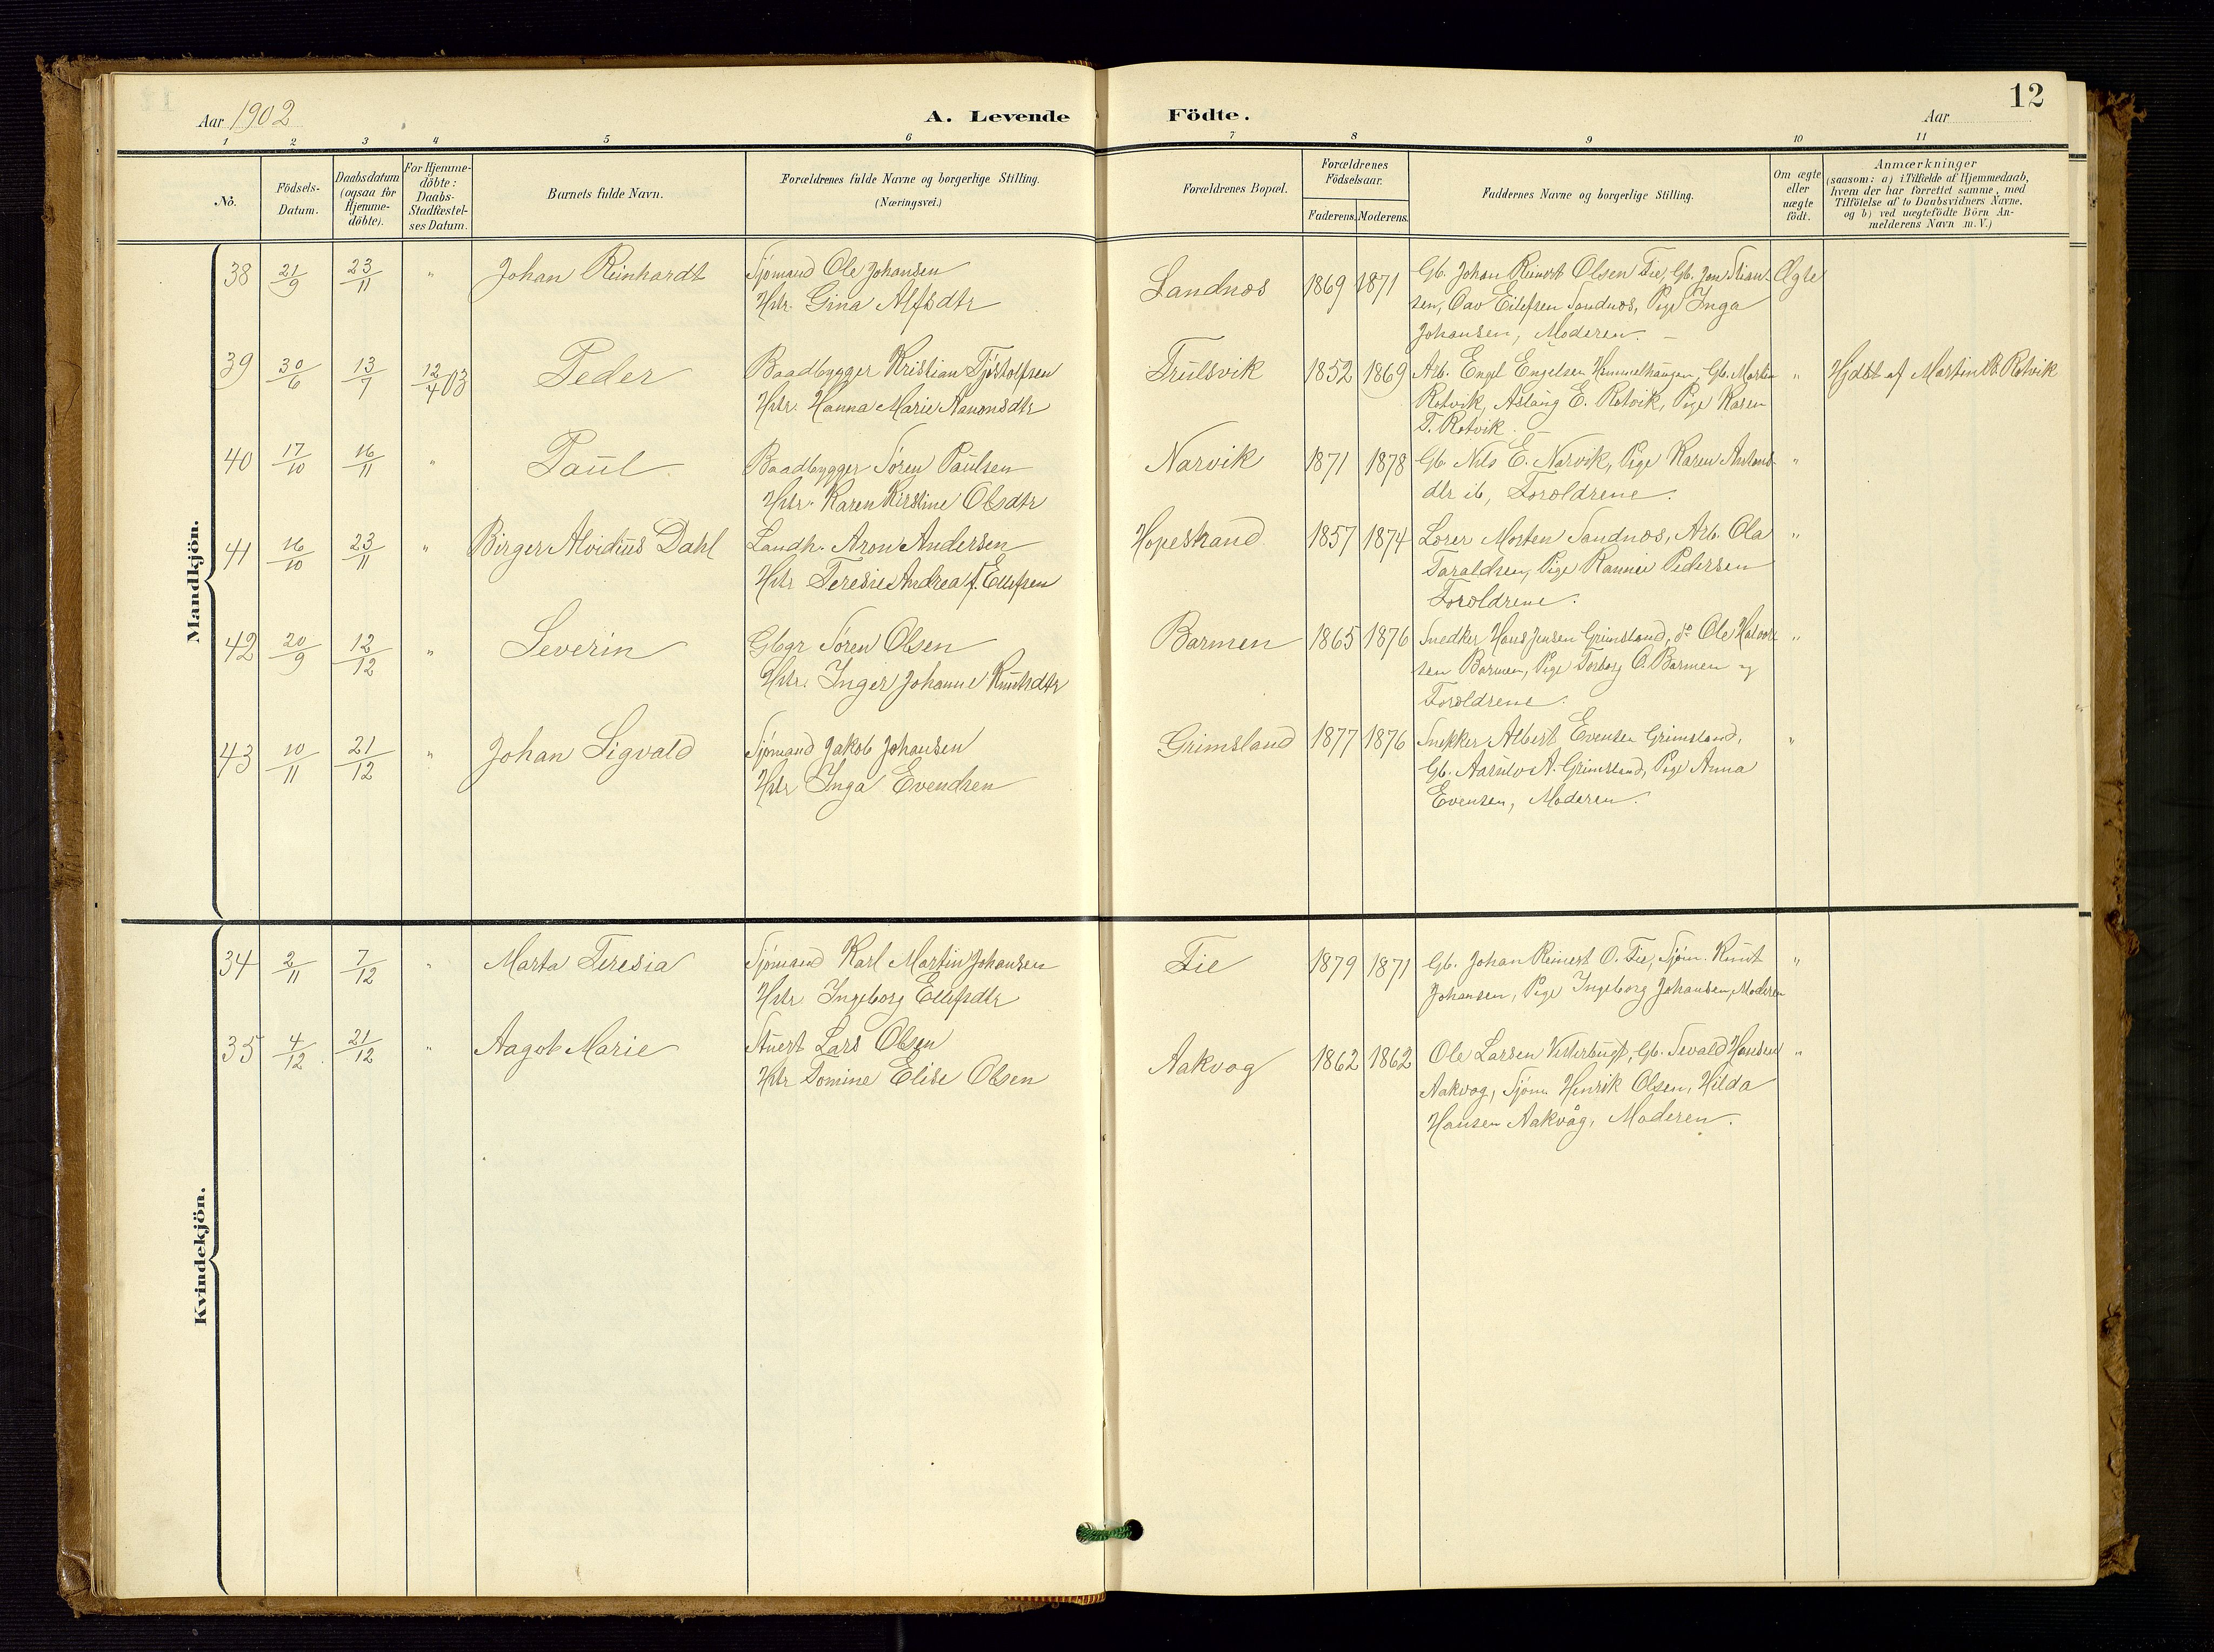 12
Aar 1902
A. Levende Födte.
Aar
1 2 3 4 5 6 7 8 9 10 11
No.
Födsels-Datum.
Daabsdatum (ogsaa for Hjemme-döbte).
For Hjemme-döbte: Daabs-Stadfæstel-ses Datum.
Barnets fulde Navn.
Forældrenes fulde Navne og borgerlige Stilling.
(Næringsvei.)
Forældrenes Bopæl.
Forældrenes Födselsaar.
Faderens. Moderens.
Faddernes Navne og borgerlige Stilling.
Om ægte eller uægte födt.
Anmærkninger
(saasom: a) i Tilfælde af Hjemmedaab,
hvem der har forrettet samme, med
Tilföielse af to Daabsvidners Navne.
og b) ved uægtefödte Börn An-
melderens Navn m. V.)
Mandkjön.
38 21/9 23/11 " Johan Reinhardt Sjømand Ole Johansen Sandnæs 1869 1871 Gb. Johan Reinert Olsen Fie, Gb. Jon Stian- Ægte
Hstr. Gina Alfsdtr sen, Oav Eilefsen Sandnæs, Pige Inga
Johansen, Moderen.
39 30/6 13/7 12/4 03 Peder Baadbygger Kristian Tjøstolfsen Trulsvik 1852 1869 Arb. Engel Engelsen Hummelhaugen, Gb. Martin " Hjdbt af Martin Rotvik
Hstr. Hanna Marie Aanonsdtr Rotvik, Aslaug E. Rotvik, Pige Karen
T. Rotvik.
40 17/10 16/11 " Paul Baadbygger Søren Paulsen Narvik 1871 1878 Gb. Nils E. Narvik, Pige Karen "
Hstr. Karen Kirstine Olsdtr dtr ib, Forældrene.
41 16/10 23/11 " Birger Alvidius Dahl Landh. Aron Andersen Hopestrand 1857 1874 Morten Sandnæs, Arb. Ola "
Hstr Teresie Andrea f. Ellefsen Taraldsen, Pige Rannei Pedersen
Forældrene.
42 20/9 12/12 " Severin Gbgr Søren Olsen Barmen 1865 1876 Snedker Hans Jensen Grimsland, do Ole Halvor- "
Hstr. Inger Johanne Knutsdtr sen Barmen, Pige Torborg O. Barmen og
Forældrene.
43 10/11 21/12 " Johan Sigvald Sjømand Jakob Johansen Grimsland 1877 1876 Snekker Albert Evensen Grimsland, "
Hstr Inga Evendsen Gb. Aasulv A. Grimsland, Pige Anna
Evensen, Moderen.
Kvindekjön.
34 2/11 7/12 " Marta Teresia Sjømand Karl Martin Johansen Fie 1879 1871 Gb. Johan Reinert O. Fie, Sjøm. Knut "
Hstr. Ingeborg Ellefsdtr Johansen, Pige Ingeborg Johansen, Moderen
35 4/12 21/12 " Aagot Marie Stuert Lars Olsen Aakvag 1862 1862 Ole Larsen Vesterbugt, Gb. Sevald Hansen "
Hstr Tomine Elise Olsen Aakvag, Sjøm. Henrik Olsen, Hilda
Hansen Aakvåg, Moderen.